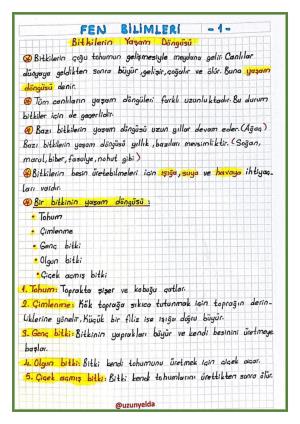 FEN BİLİMLERİ -1-
Bitkilerin Yaşam Döngüsü
Bitkilerin çoğu tohumun gelişmesiyle meydana gelir. Canlılar
dünyaya geldikten sonra büyür gelişir, çoğalır ve ölür. Buna yaşam
döngüsü denir.
Tüm canlıların yaşam döngüleri farklı uzunluktadır. Bu durum
bitkiler için de geçerlidir.
Bazı bitkilerin yaşam döngüsü uzun yıllar devam eder. (Ağaç)
Bazı bitkilerin yaşam döngüsü yıllık, bazıları mevsimliktir. (Soğan,
marul, biber, fasulye, nohut gibi)
Bitkilerin besin üretebilmeleri için ışığa, suya ve havaya ihtiyaç-
ları vardır.
Bir bitkinin yaşam döngüsü:
• Tohum
• Çimlenme
• Genç bitki
• Olgun bitki
• Çiçek açmış bitki
1. Tohum: Toprakta şişer ve kabuğu çatlar.
2. Çimlenme: Kök toprağa sıkıca tutunmak için toprağın derin-
liklerine yönelir. Küçük bir filiz ise ışığa doğru büyür.
3. Genç bitki: Bitkinin yaprakları büyür ve kendi besinini üretmeye
başlar.
4. Olgun bitki: Bitki kendi tohumunu üretmek için çiçek açar.
5. Çiçek açmış bitki: Bitki kendi tohumlarını ürettikten sonra ölür.
@uzunyelda